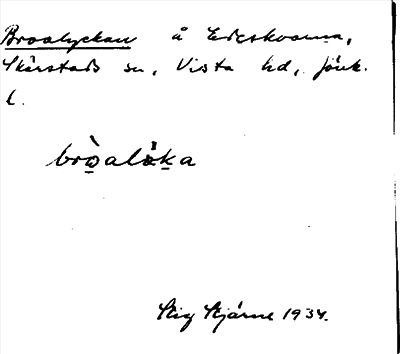 Broalyckan å Erikskvarna,
Skärstads sn, Vista hd, Jönk.
l.
bròalǜka
Stig Stjärne 1934.